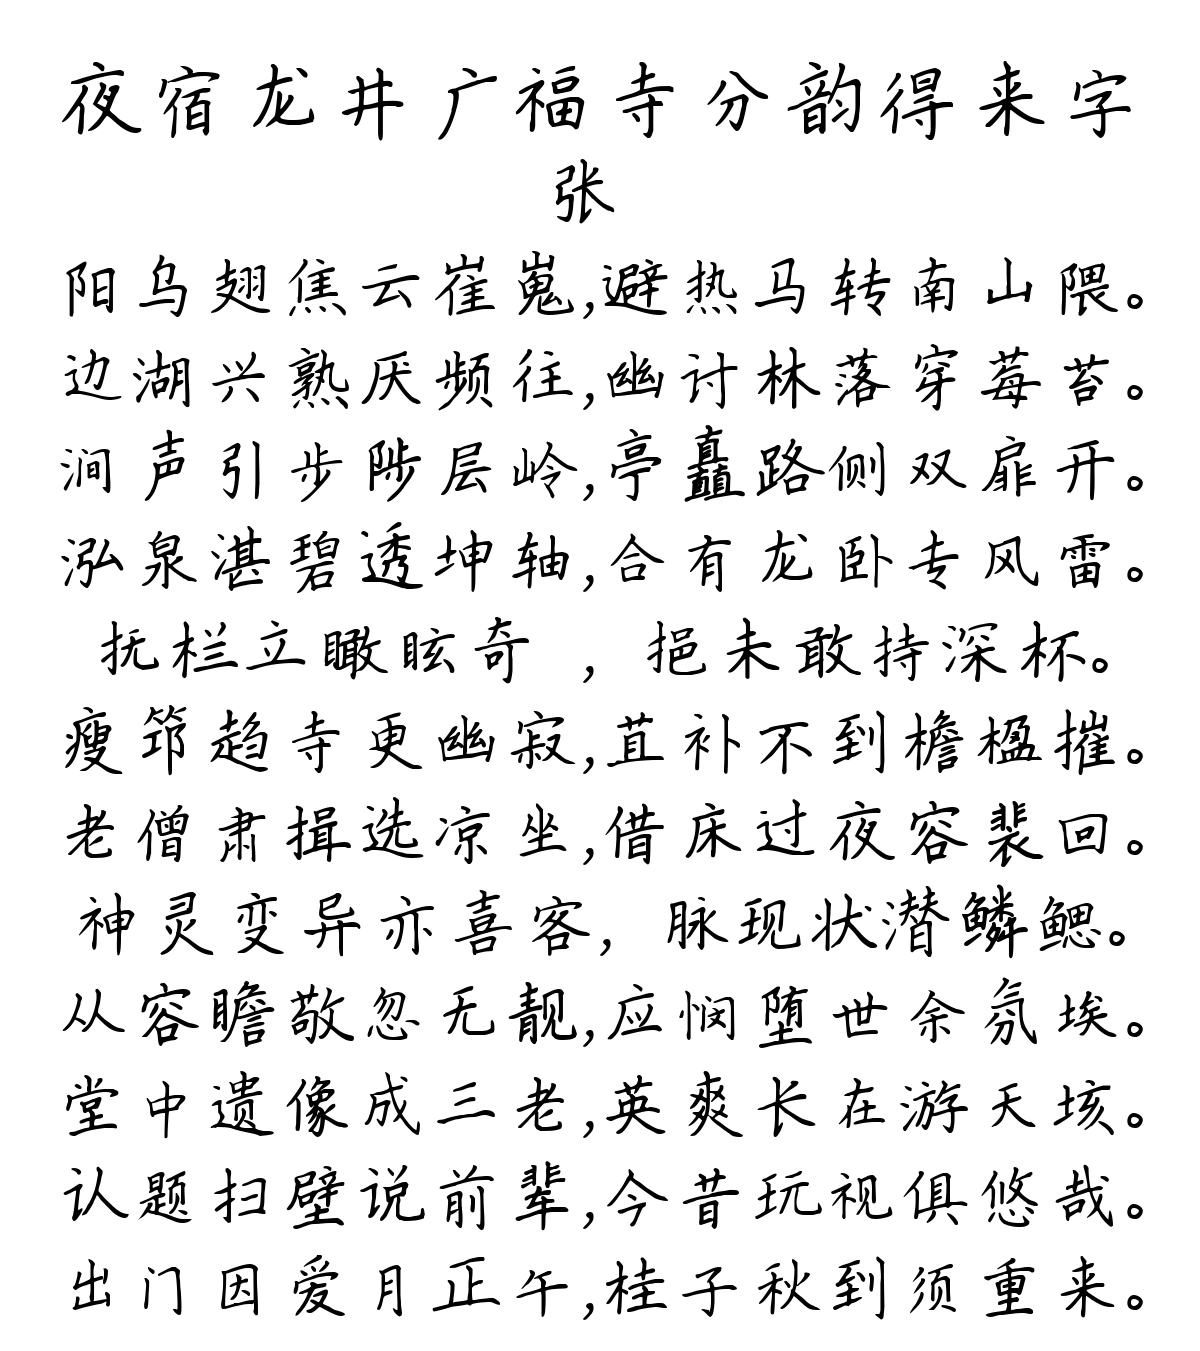 夜宿龙井广福寺分韵得来字
张
阳乌翅焦云崔嵬,避热马转南山隈。
边湖兴熟厌频往,幽讨林落穿莓苔。
涧声引步陟层岭,亭矗路侧双扉开。
泓泉湛碧透坤轴,合有龙卧专风雷。
抚栏立瞰眩奇 ，挹未敢持深杯。
瘦筇趋寺更幽寂,苴补不到檐楹摧。
老僧肃揖选凉坐,借床过夜容裴回。
神灵变异亦喜客，脉现状潜鳞鳃。
从容瞻敬忽无靓,应悯堕世余氛埃。
堂中遗像成三老,英爽长在游天垓。
认题扫壁说前辈,今昔玩视俱悠哉。
出门因爱月正午,桂子秋到须重来。